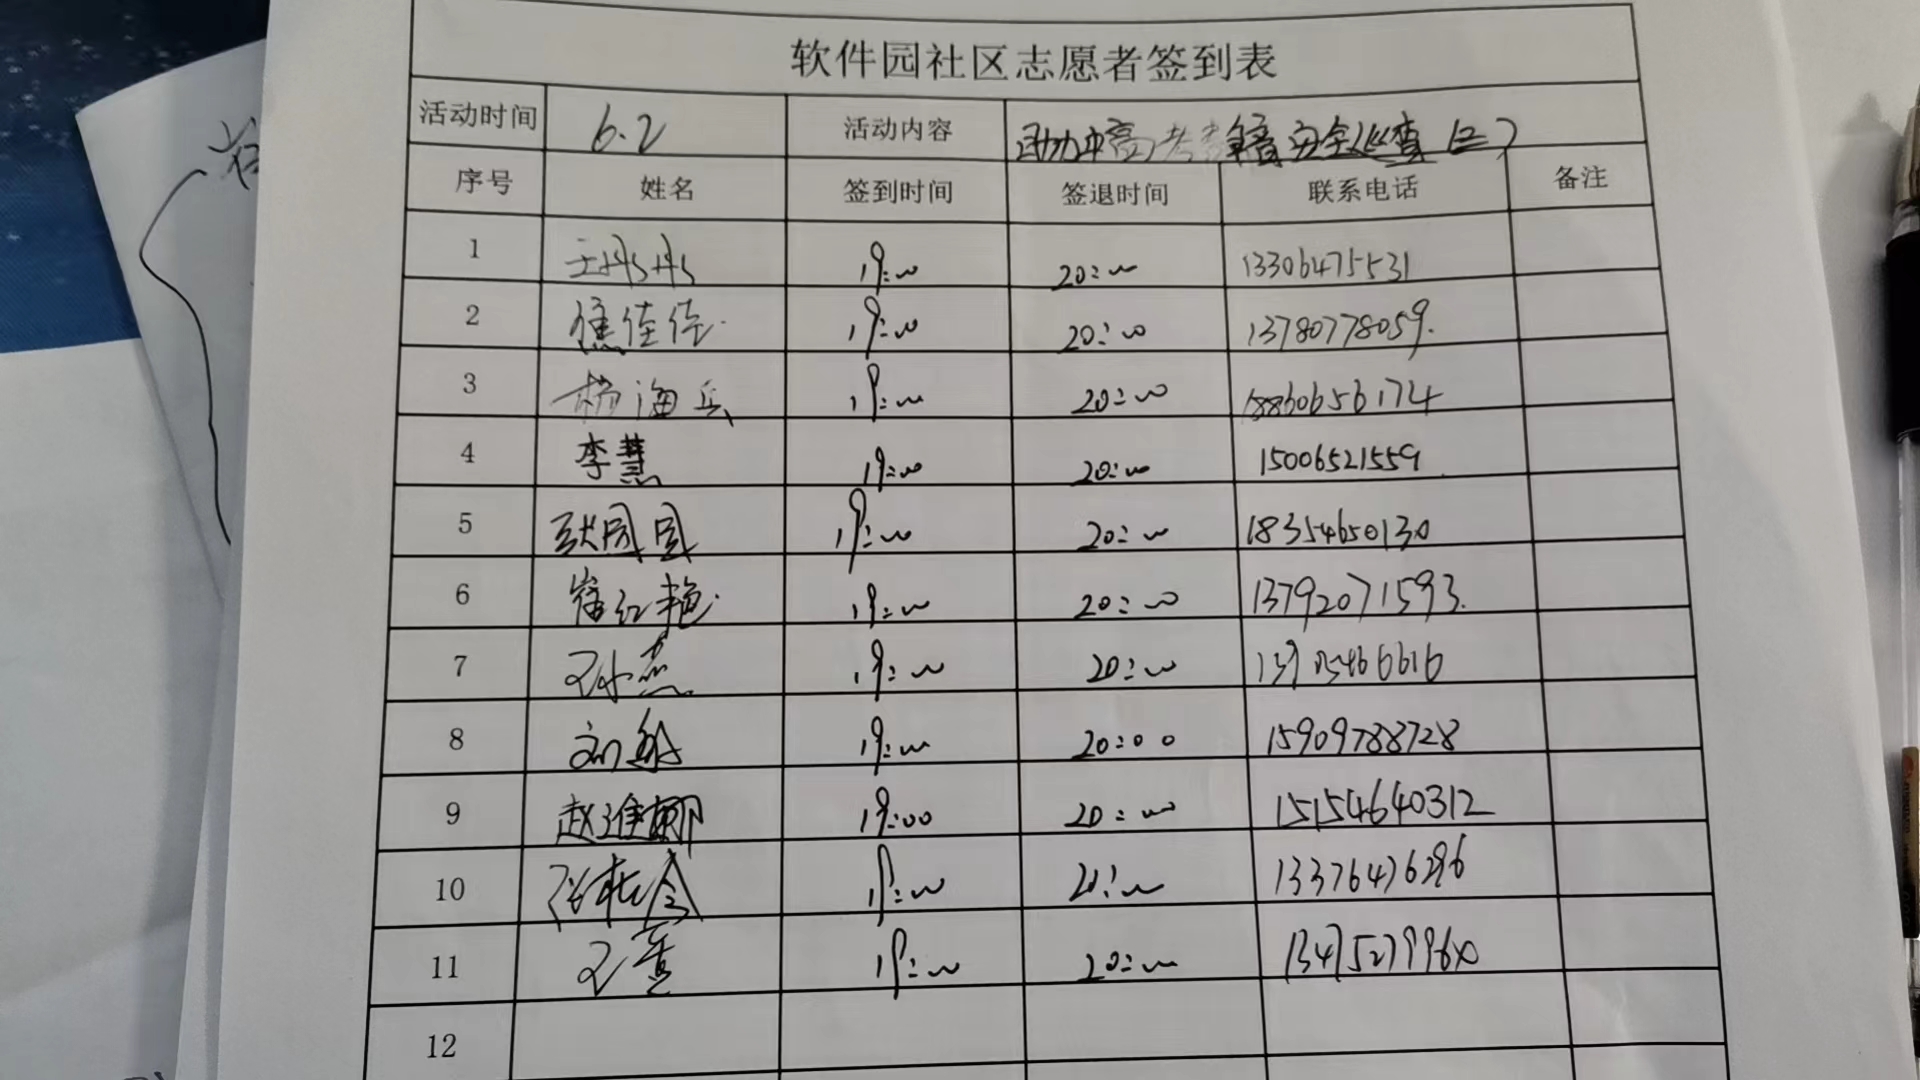 软件园社区志愿者签到表
活动时间 6.2 活动内容 助力中高考 静音安全巡查(二)
序号 姓名 签到时间 签退时间 联系电话 备注
1 王彤彤 19:00 20:00 13306475531
2 焦佳佳 19:00 20:00 13780778059.
3 杨海兵 19:00 20:00 18860656174
4 李慧 19:00 20:00 15006521559
5 19:00 20:00 18354650130
6 崔红艳 19:00 20:00 13792071593.
7 孙燕 19:00 20:00
8 刘 19:00 20:00 15909788728
9 赵 19:00 20:00 15154640312
10 19:00 20:00 13376476296
11 19:00 20:00
12